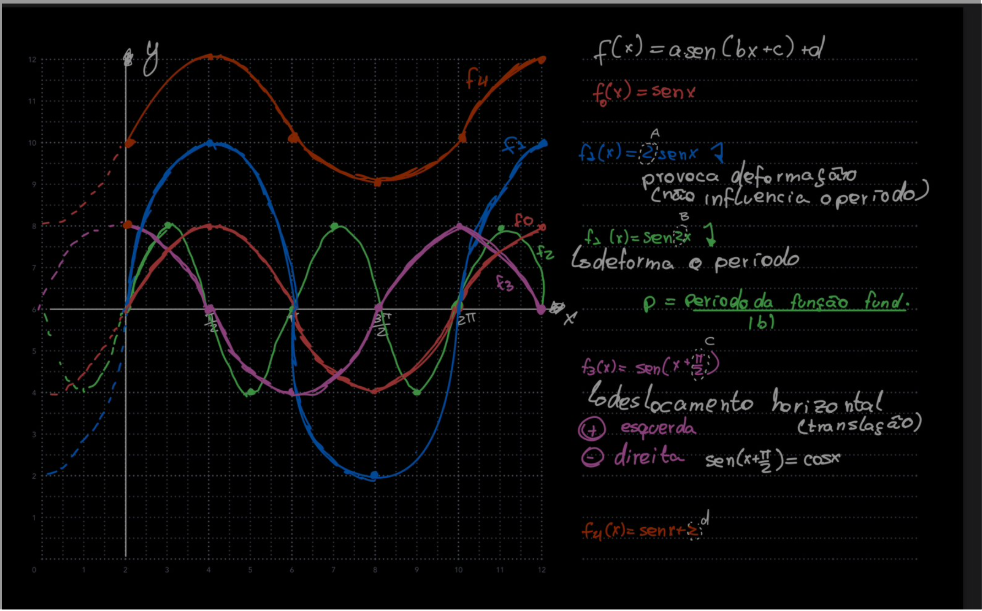 y
12
11
10
9
8
7
5
4
3
2
1
0 1 2 3 4 5 6 7 8 9 10 11 12
f4
f1
f0
f2
f3
π/2
3π/2
2π
x
f(x) = a sen(bx+c) + d
f₀(x) = sen x
A
f₁(x) = 2 sen x
provoca deformação
(não influencia o período)
B
f₂(x) = sen 2x
deforma o período
P = Período da função fund.
|b|
C
f₃(x) = sen(x + π/2)
deslocamento horizontal
(translação)
+ esquerda
- direita sen(x+π/2) = cos x
d
f₄(x) = sen x + 2